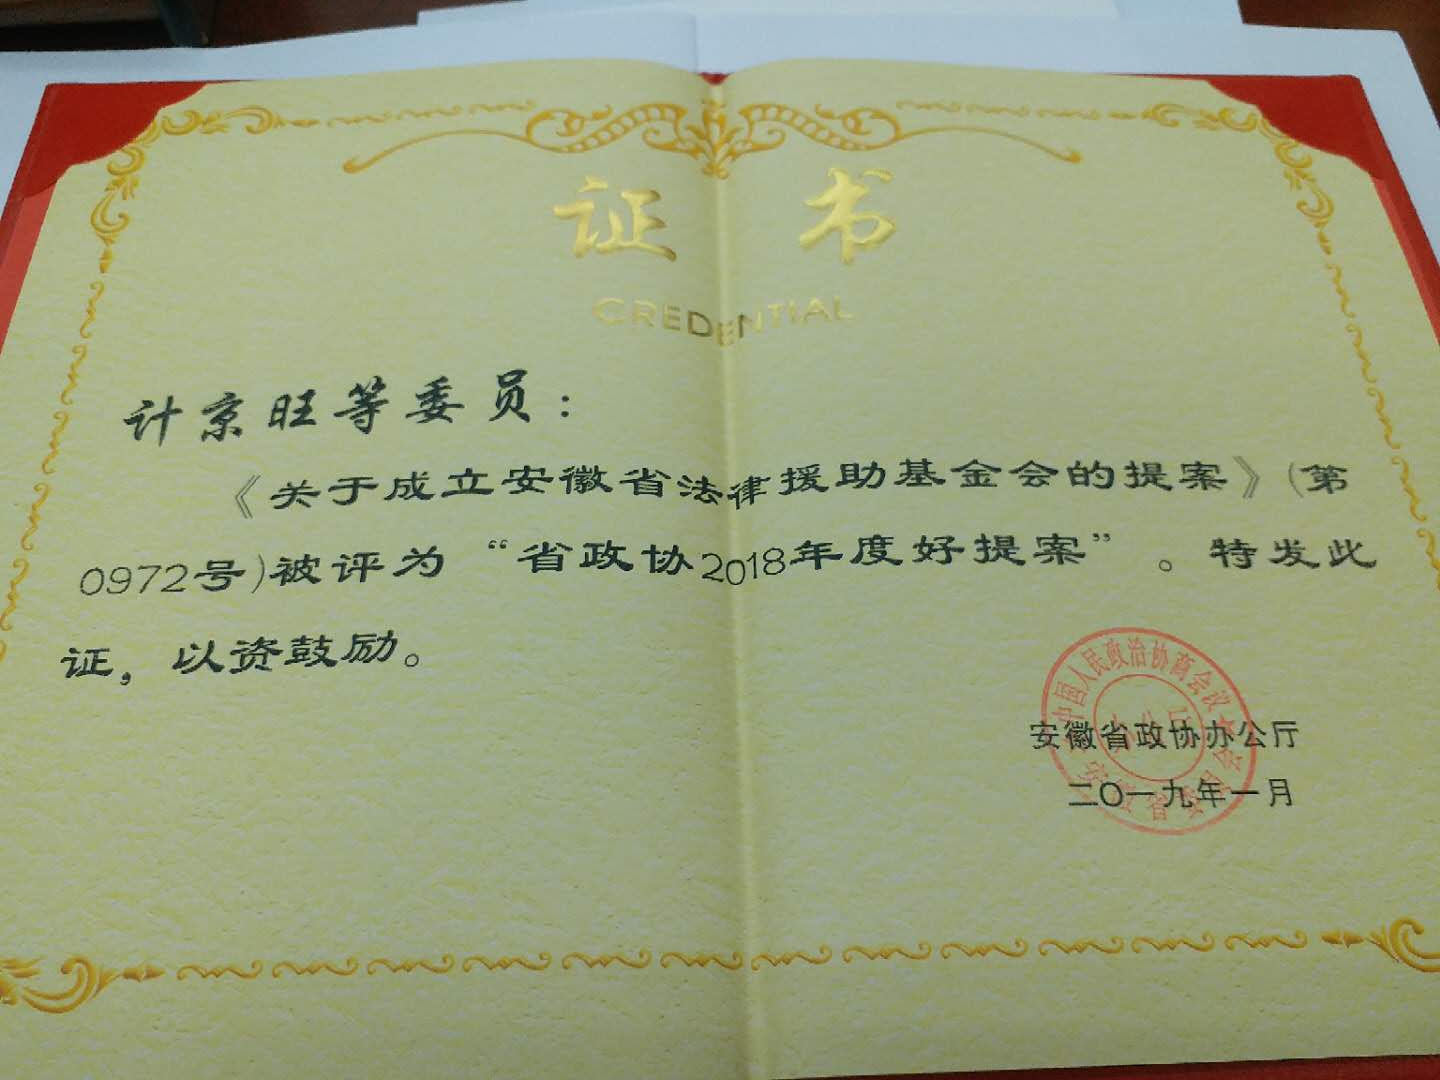 证 书
CREDENTIAL
计京旺等委员：
《关于成立安徽省法律援助基金会的提案》(第
0972号)被评为“省政协2018年度好提案”。特发此
证，以资鼓励。
中国人民政治协商会议
安徽省政协办公厅
二〇一九年一月